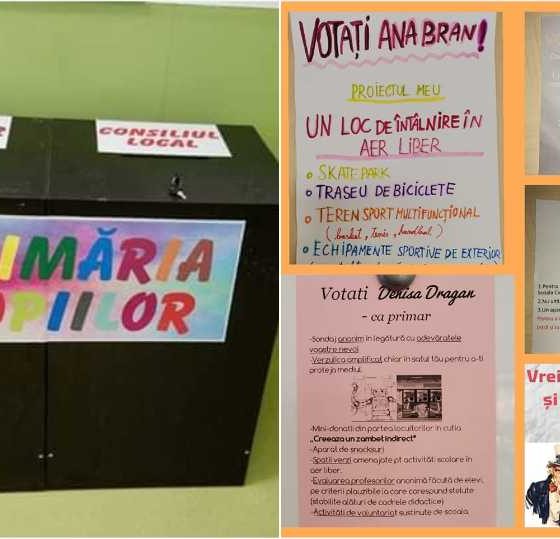 CONSILIUL
LOCAL
IMĂRIA
OPIILOR
VOTAȚI ANA BRAN!
PROIECTUL MEU
UN LOC DE ÎNTÂLNIRE ÎN
AER LIBER
SKATE PARK
TRASEU DE BICICLETE
TEREN SPORT MULTIFUNCȚIONAL
(basket, tenis, handbal)
ECHIPAMENTE SPORTIVE DE EXTERIOR
Votati Denisa Dragan
- ca primar
-Sondaj anonim in legătură cu adevăratele
voastre nevoi
-Verzulica amplificat chiar în satul tău pentru a-ti
proteja mediul.
-Mini-donatii din partea locuitorilor in cutia
„Creeaza un zambet indirect"
-Aparat de snacksuri
-Spatii verzi amenajate pt activităti scolare în
aer liber.
-Evaluarea profesorilor anonimă făcută de elevi,
pe criterii plauzibile la care corespund stelute
(stabilite alături de cadrele didactice)
-Activităti de voluntariat sustinute de scoala.
1.Pentru
2.Nu
Vrei
și